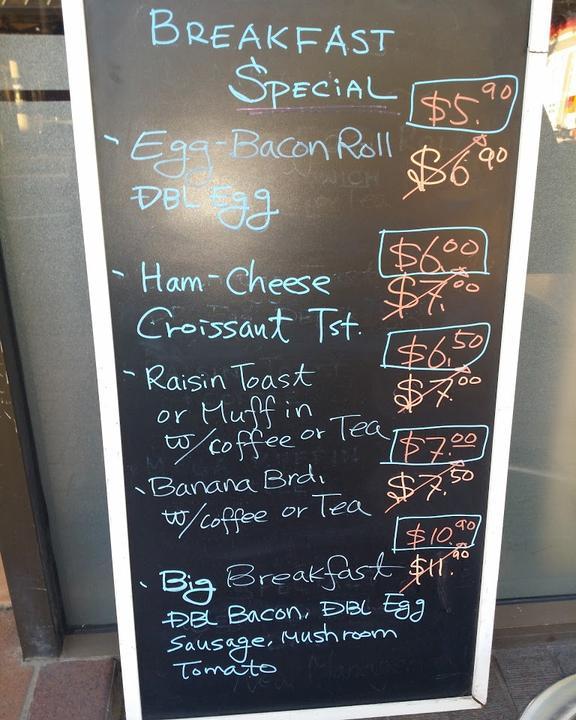 BREAKFAST
SPECIAL
$5.90
- Egg-Bacon Roll $6.90
DBL Egg
$6.00
- Ham-Cheese $7.00
Croissant Tst.
$6.50
- Raisin Toast $7.00
or Muffin
w/coffee or Tea
$7.00
- Banana Brd. $7.50
w/coffee or Tea
$10.90
- Big Breakfast $11.90
DBL Bacon, DBL Egg
Sausage, Mushroom
Tomato